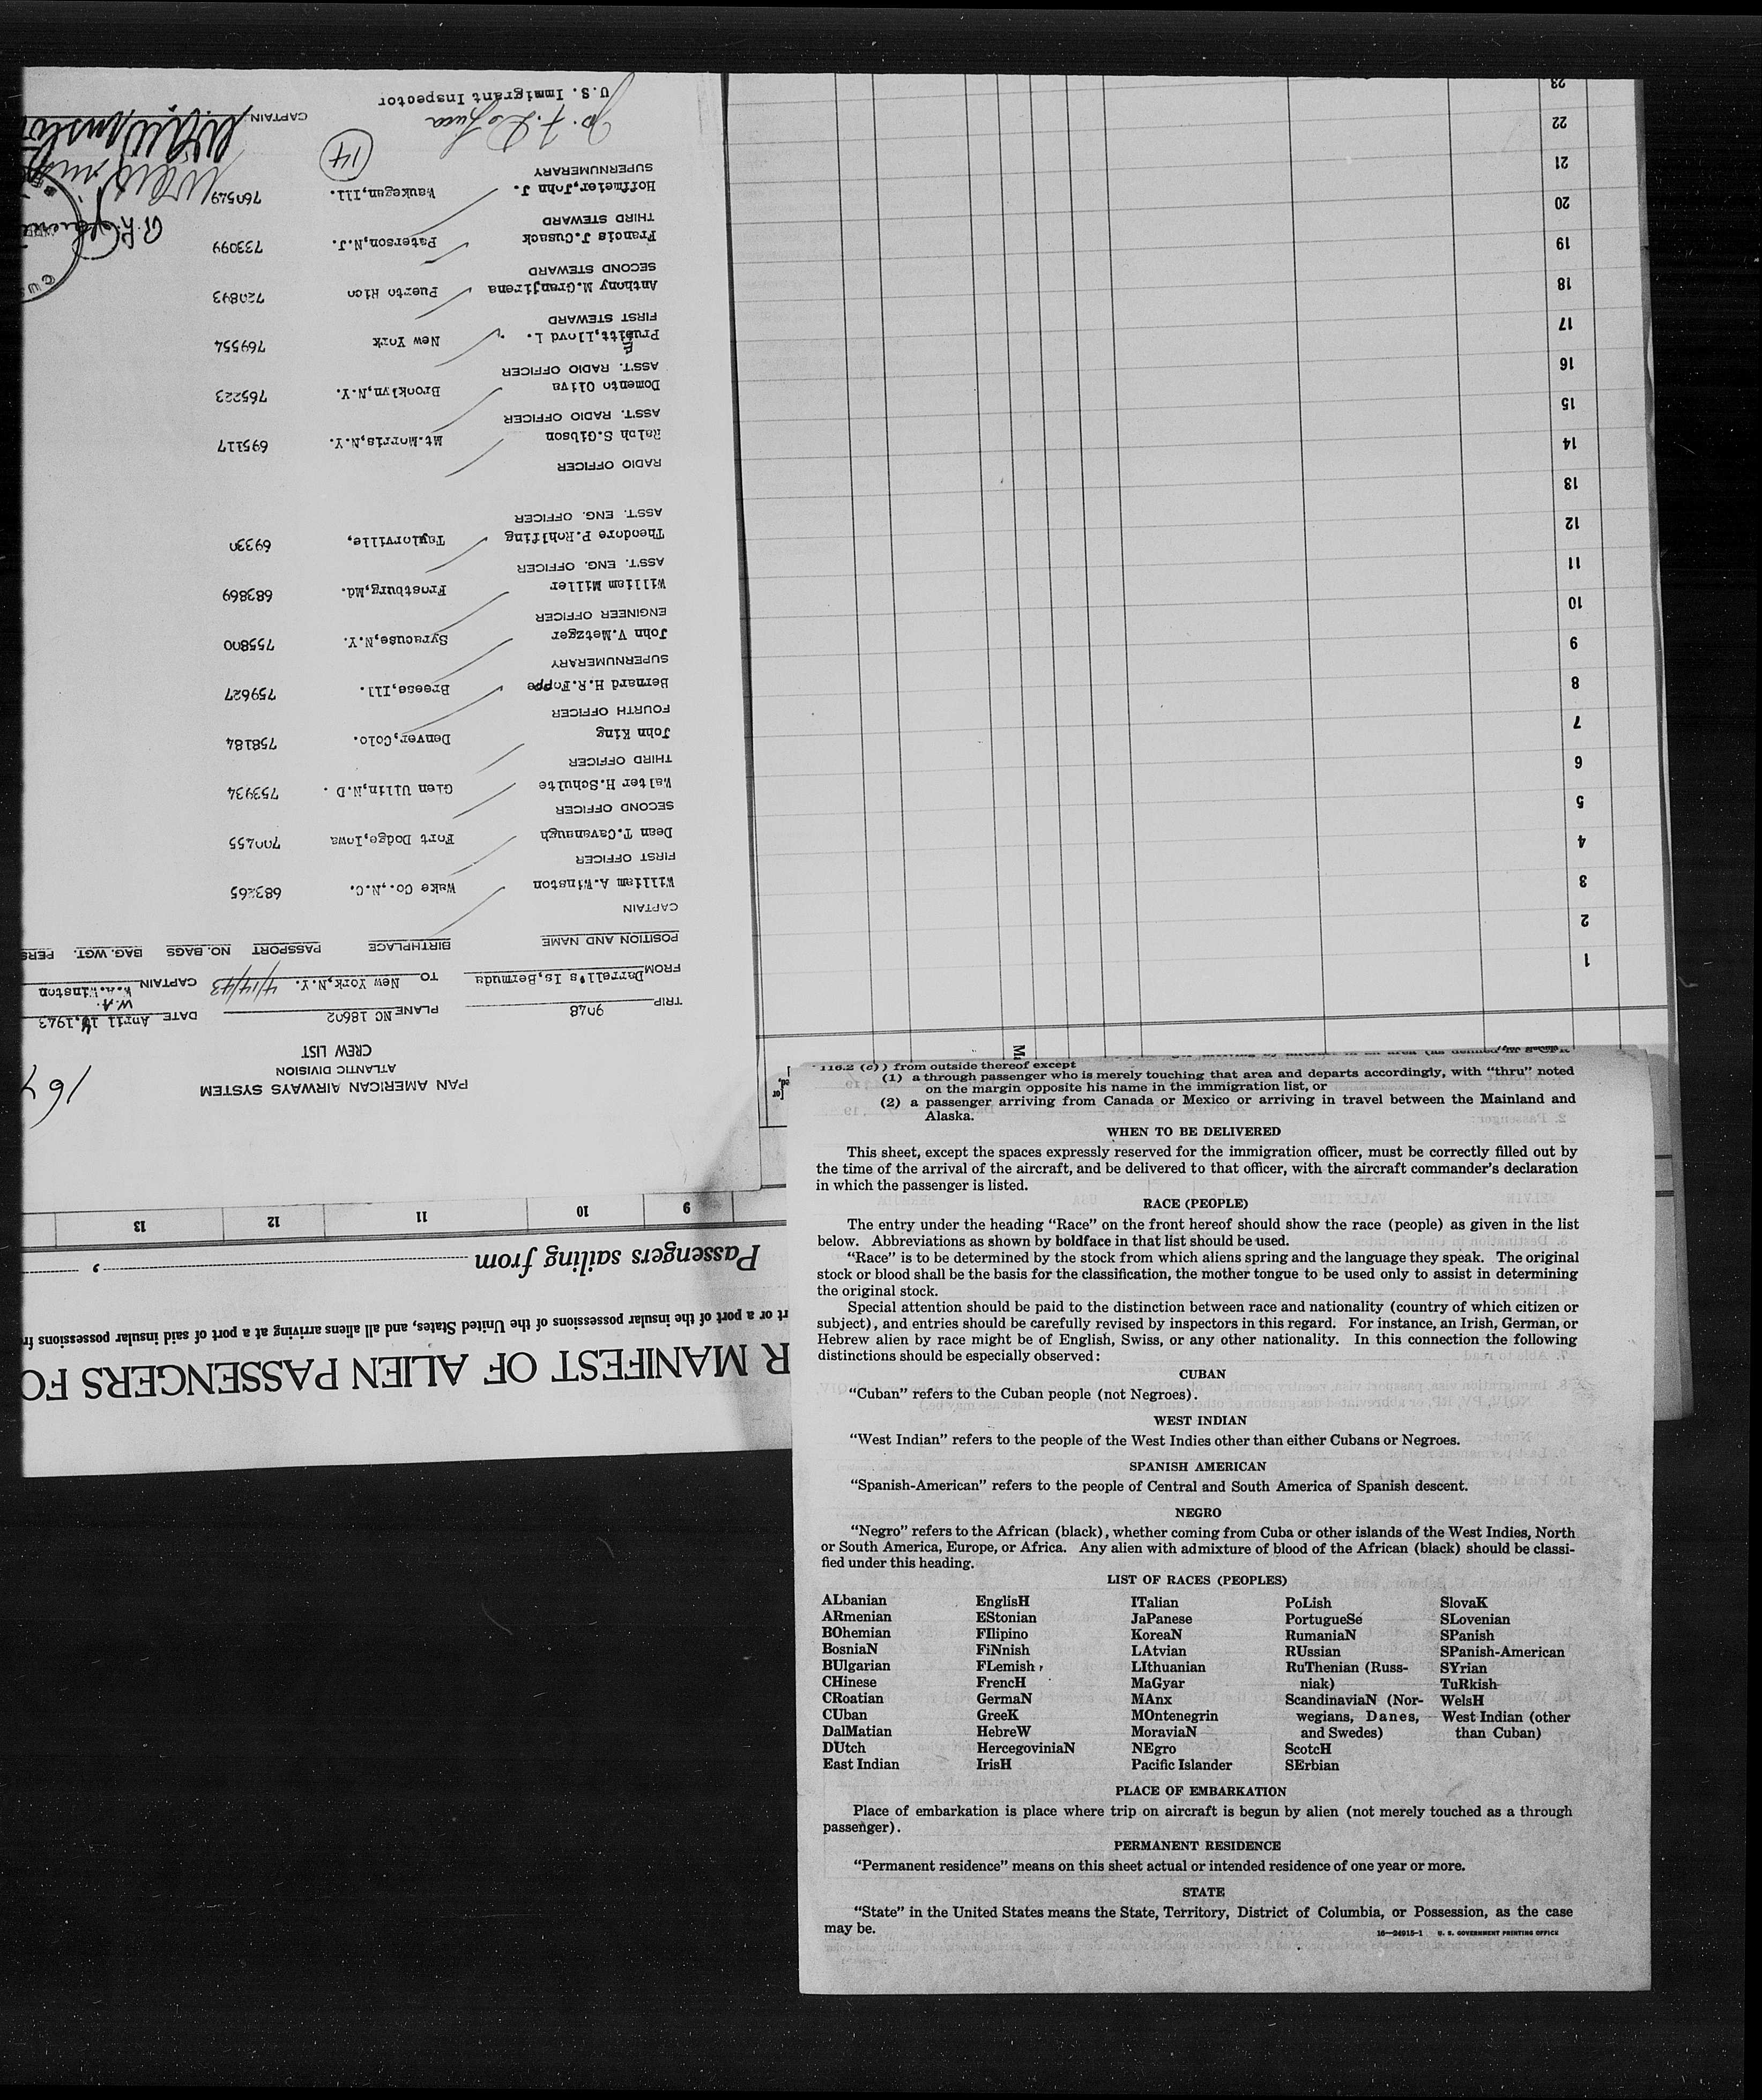 164
PAN AMERICAN AIRWAYS SYSTEM
ATLANTIC DIVISION
CREW LIST
TRIP 9048 PLANE NC 18602 DATE April 14,1943
W.A.
FROM Darrell's Is,Bermuda TO New York,N.Y. 4/14/43 CAPTAIN W.A.Winston
POSITION AND NAME BIRTHPLACE PASSPORT NO. BAGS BAG. WGT. PERS
CAPTAIN
William A.Winston Wake Co.,N.C. 683265
FIRST OFFICER
Dean T.Cavanaugh Fort Dodge,Iowa 700455
SECOND OFFICER
Walter H.Schulte Glen Ullin,N.D. 753934
THIRD OFFICER
John King Denver,Colo. 758184
FOURTH OFFICER
Bernard H.R.Foppe Breese,Ill. 759627
SUPERNUMERARY
John V.Metzger Syracuse,N.Y. 755800
ENGINEER OFFICER
William Miller Frostburg,Md. 683869
ASS'T. ENG. OFFICER
Theodore P.Rohlfing Taylorville, 69330
ASS'T. ENG. OFFICER
RADIO OFFICER
Ralph S.Gibson Mt.Morris,N.Y. 695117
ASS'T. RADIO OFFICER
Domento Oliva Brooklyn,N.Y. 765223
ASS'T. RADIO OFFICER
Prueitt,Lloyd L. New York 769554
FIRST STEWARD
Anthony M.Granjirena Puerto Rico 720893
SECOND STEWARD
Francis J.Cusack Paterson,N.J. 733099
THIRD STEWARD
Hoffmeier,John J. Waukegan,Ill. 760549
SUPERNUMERARY
14
CAPTAIN
U.S. Immigrant Inspector
R MANIFEST OF ALIEN PASSENGERS FO
rt or a port of the insular possessions of the United States, and all aliens arriving at a port of said insular possessions fr
Passengers sailing from ,
9 10 11 12 13
1
2
3
4
5
6
7
8
9
10
11
12
13
14
15
16
17
18
19
20
21
22
23
116.2 (c)) from outside thereof except
(1) a through passenger who is merely touching that area and departs accordingly, with “thru” noted
on the margin opposite his name in the immigration list, or
(2) a passenger arriving from Canada or Mexico or arriving in travel between the Mainland and
Alaska.
WHEN TO BE DELIVERED
This sheet, except the spaces expressly reserved for the immigration officer, must be correctly filled out by
the time of the arrival of the aircraft, and be delivered to that officer, with the aircraft commander’s declaration
in which the passenger is listed.
RACE (PEOPLE)
The entry under the heading “Race” on the front hereof should show the race (people) as given in the list
below. Abbreviations as shown by boldface in that list should be used.
“Race” is to be determined by the stock from which aliens spring and the language they speak. The original
stock or blood shall be the basis for the classification, the mother tongue to be used only to assist in determining
the original stock.
Special attention should be paid to the distinction between race and nationality (country of which citizen or
subject), and entries should be carefully revised by inspectors in this regard. For instance, an Irish, German, or
Hebrew alien by race might be of English, Swiss, or any other nationality. In this connection the following
distinctions should be especially observed:
CUBAN
“Cuban” refers to the Cuban people (not Negroes).
WEST INDIAN
“West Indian” refers to the people of the West Indies other than either Cubans or Negroes.
SPANISH AMERICAN
“Spanish-American” refers to the people of Central and South America of Spanish descent.
NEGRO
“Negro” refers to the African (black), whether coming from Cuba or other islands of the West Indies, North
or South America, Europe, or Africa. Any alien with admixture of blood of the African (black) should be classi-
fied under this heading.
LIST OF RACES (PEOPLES)
ALbanian EnglisH ITalian PoLish SlovaK
ARmenian EStonian JaPanese PortugueSe SLovenian
BOhemian FIlipino KoreaN RumaniaN SPanish
BosniaN FiNnish LAtvian RUssian SPanish-American
BUlgarian FLemish LIthuanian RuThenian (Russ- SYrian
CHinese FrencH MaGyar niak) TuRkish
CRoatian GermaN MAnx ScandinaviaN (Nor- WelsH
CUban GreeK MOntenegrin wegians, Danes, West Indian (other
DalMatian HebreW MoraviaN and Swedes) than Cuban)
DUtch HercegoviniaN NEgro ScotcH
East Indian IrisH Pacific Islander SErbian
PLACE OF EMBARKATION
Place of embarkation is place where trip on aircraft is begun by alien (not merely touched as a through
passenger).
PERMANENT RESIDENCE
“Permanent residence” means on this sheet actual or intended residence of one year or more.
STATE
“State” in the United States means the State, Territory, District of Columbia, or Possession, as the case
may be.
16—24915-1 U. S. GOVERNMENT PRINTING OFFICE